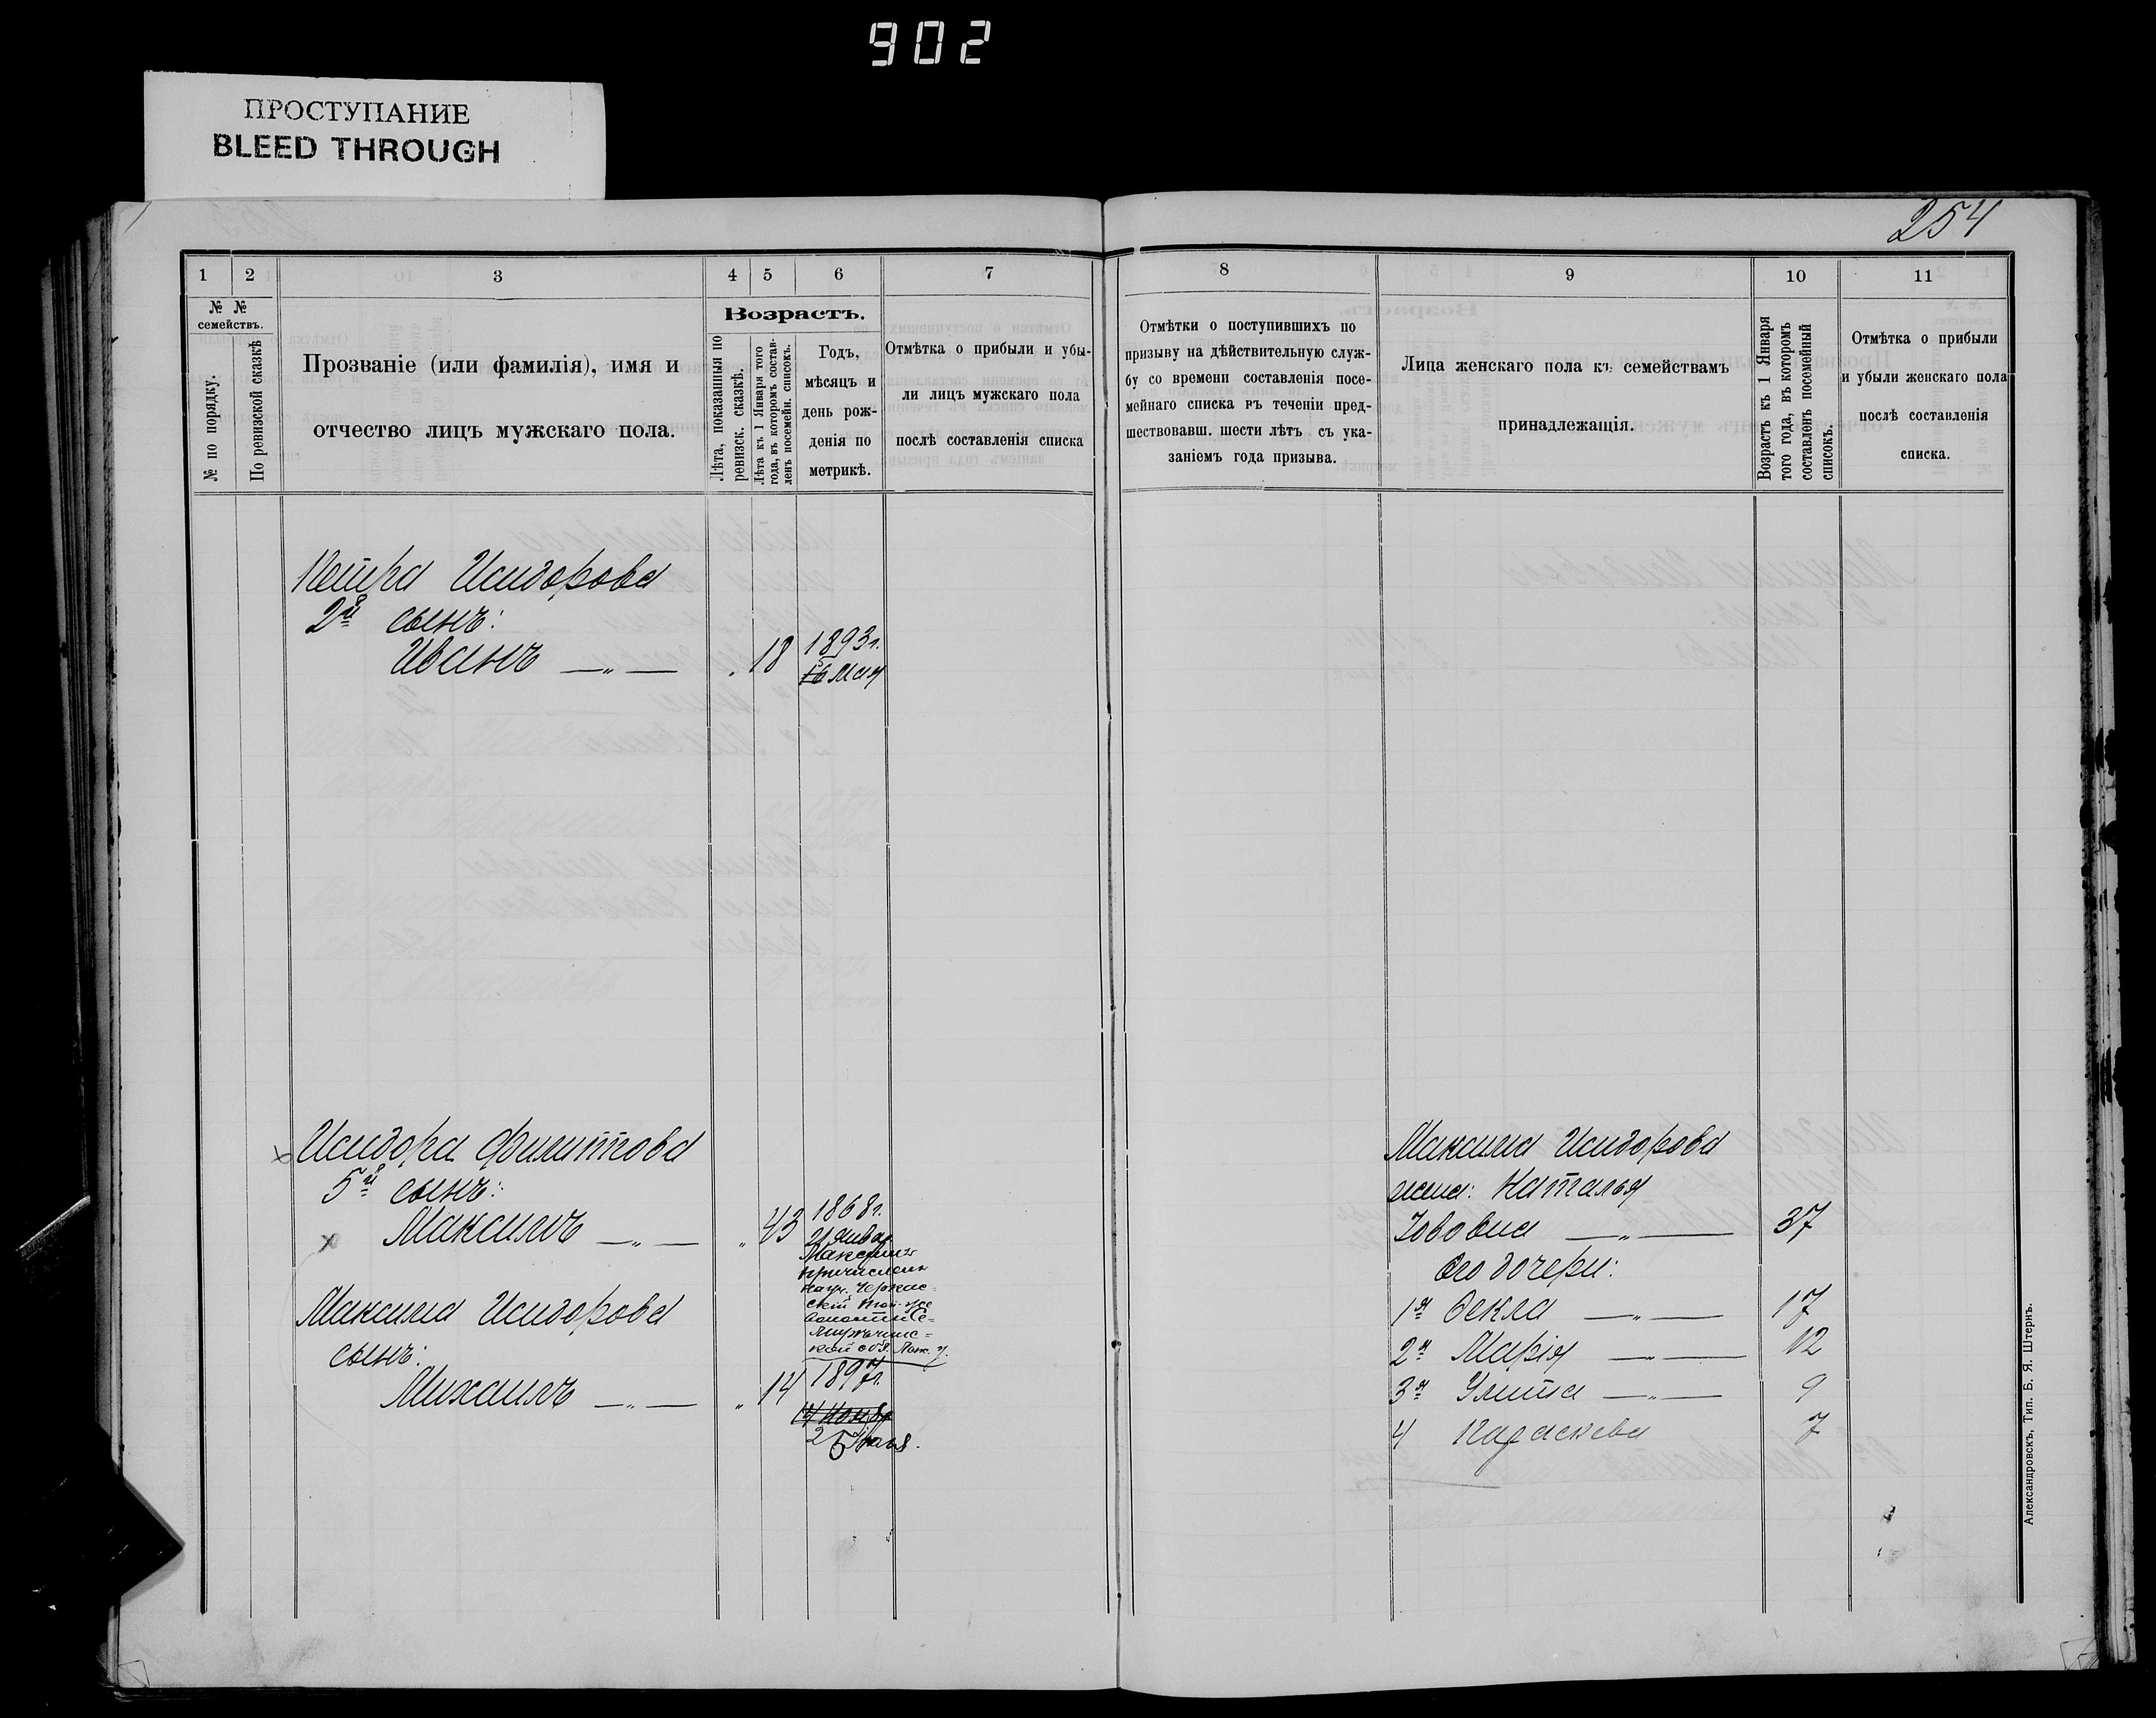 902
ПРОСТУПАНИЕ
BLEED THROUGH
254
1 2 3 4 5 6 7
№ №
семействъ.
№ по порядку.
По ревизской сказкѣ
Прозваніе (или фамилія), имя и
отчество лицъ мужскаго пола.
Возрастъ.
Лѣта, показанныя по
ревизск. сказкѣ.
Лѣта къ 1 Января того
года, въ которомъ состав-
ленъ посемейн. списокъ.
Годъ,
мѣсяцъ и
день рож-
денія по
метрикѣ.
Отмѣтка о прибыли и убы-
ли лицъ мужскаго пола
послѣ составленія списка
Петра Исидорова
2й сынъ:
Иванъ — „ — „ 18 1893г.
16 Мая
Исидора Филиппова
5й сынъ:
Максимъ — „ — „ 43 1868г.
21 Январ
Максим
причислен
Черкас-
ской
Волости Се-
мирѣчинс-
кой обл.
Максима Исидорова
сынъ:
Михаилъ — „ — „ 14 1897г.
14 Ноябр
8 9 10 11
Отмѣтки о поступившихъ по
призыву на дѣйствительную служ-
бу со времени составленія посе-
мейнаго списка въ теченіи пред-
шествовавш. шести лѣтъ съ ука-
заніемъ года призыва.
Лица женскаго пола къ семействамъ
принадлежащія.
Возрастъ къ 1 Января
того года, въ которомъ
составленъ посемейный
списокъ.
Отмѣтка о прибыли
и убыли женскаго пола
послѣ составленія
списка.
Максима Исидорова
жена: Наталья
Іововна — „ — 37
Его дочери:
1я Фекла — „ — 17
2я Марія — „ — 12
3я Улита — „ — 9
4 Параскева 7
Александровскъ, Тип. Б. Я. Штернъ.